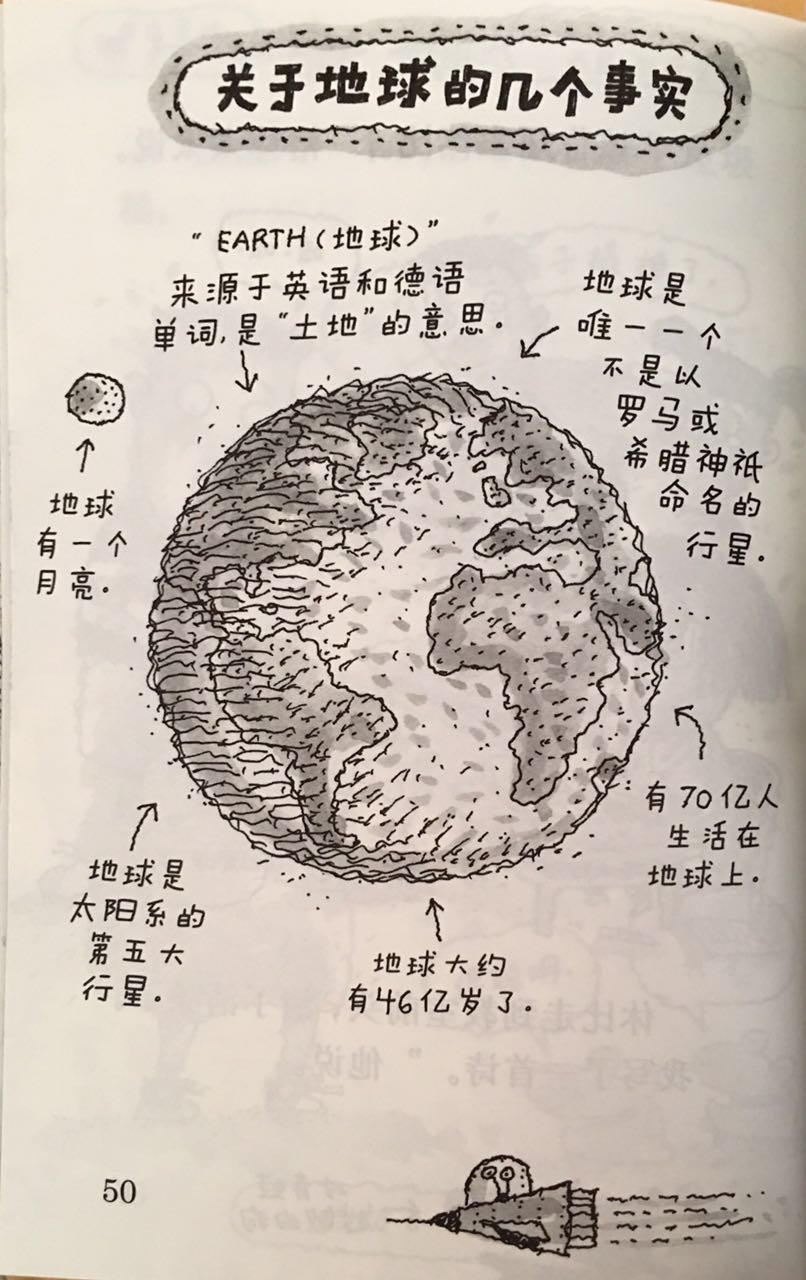 关于地球的几个事实
“EARTH(地球)”
来源于英语和德语
单词,是“土地”的意思。
地球是
唯一一个
不是以
罗马或
希腊神祇
命名的
行星。
地球
有一个
月亮。
有70亿人
生活在
地球上。
地球是
太阳系的
第五大
行星。
地球大约
有46亿岁了。
50